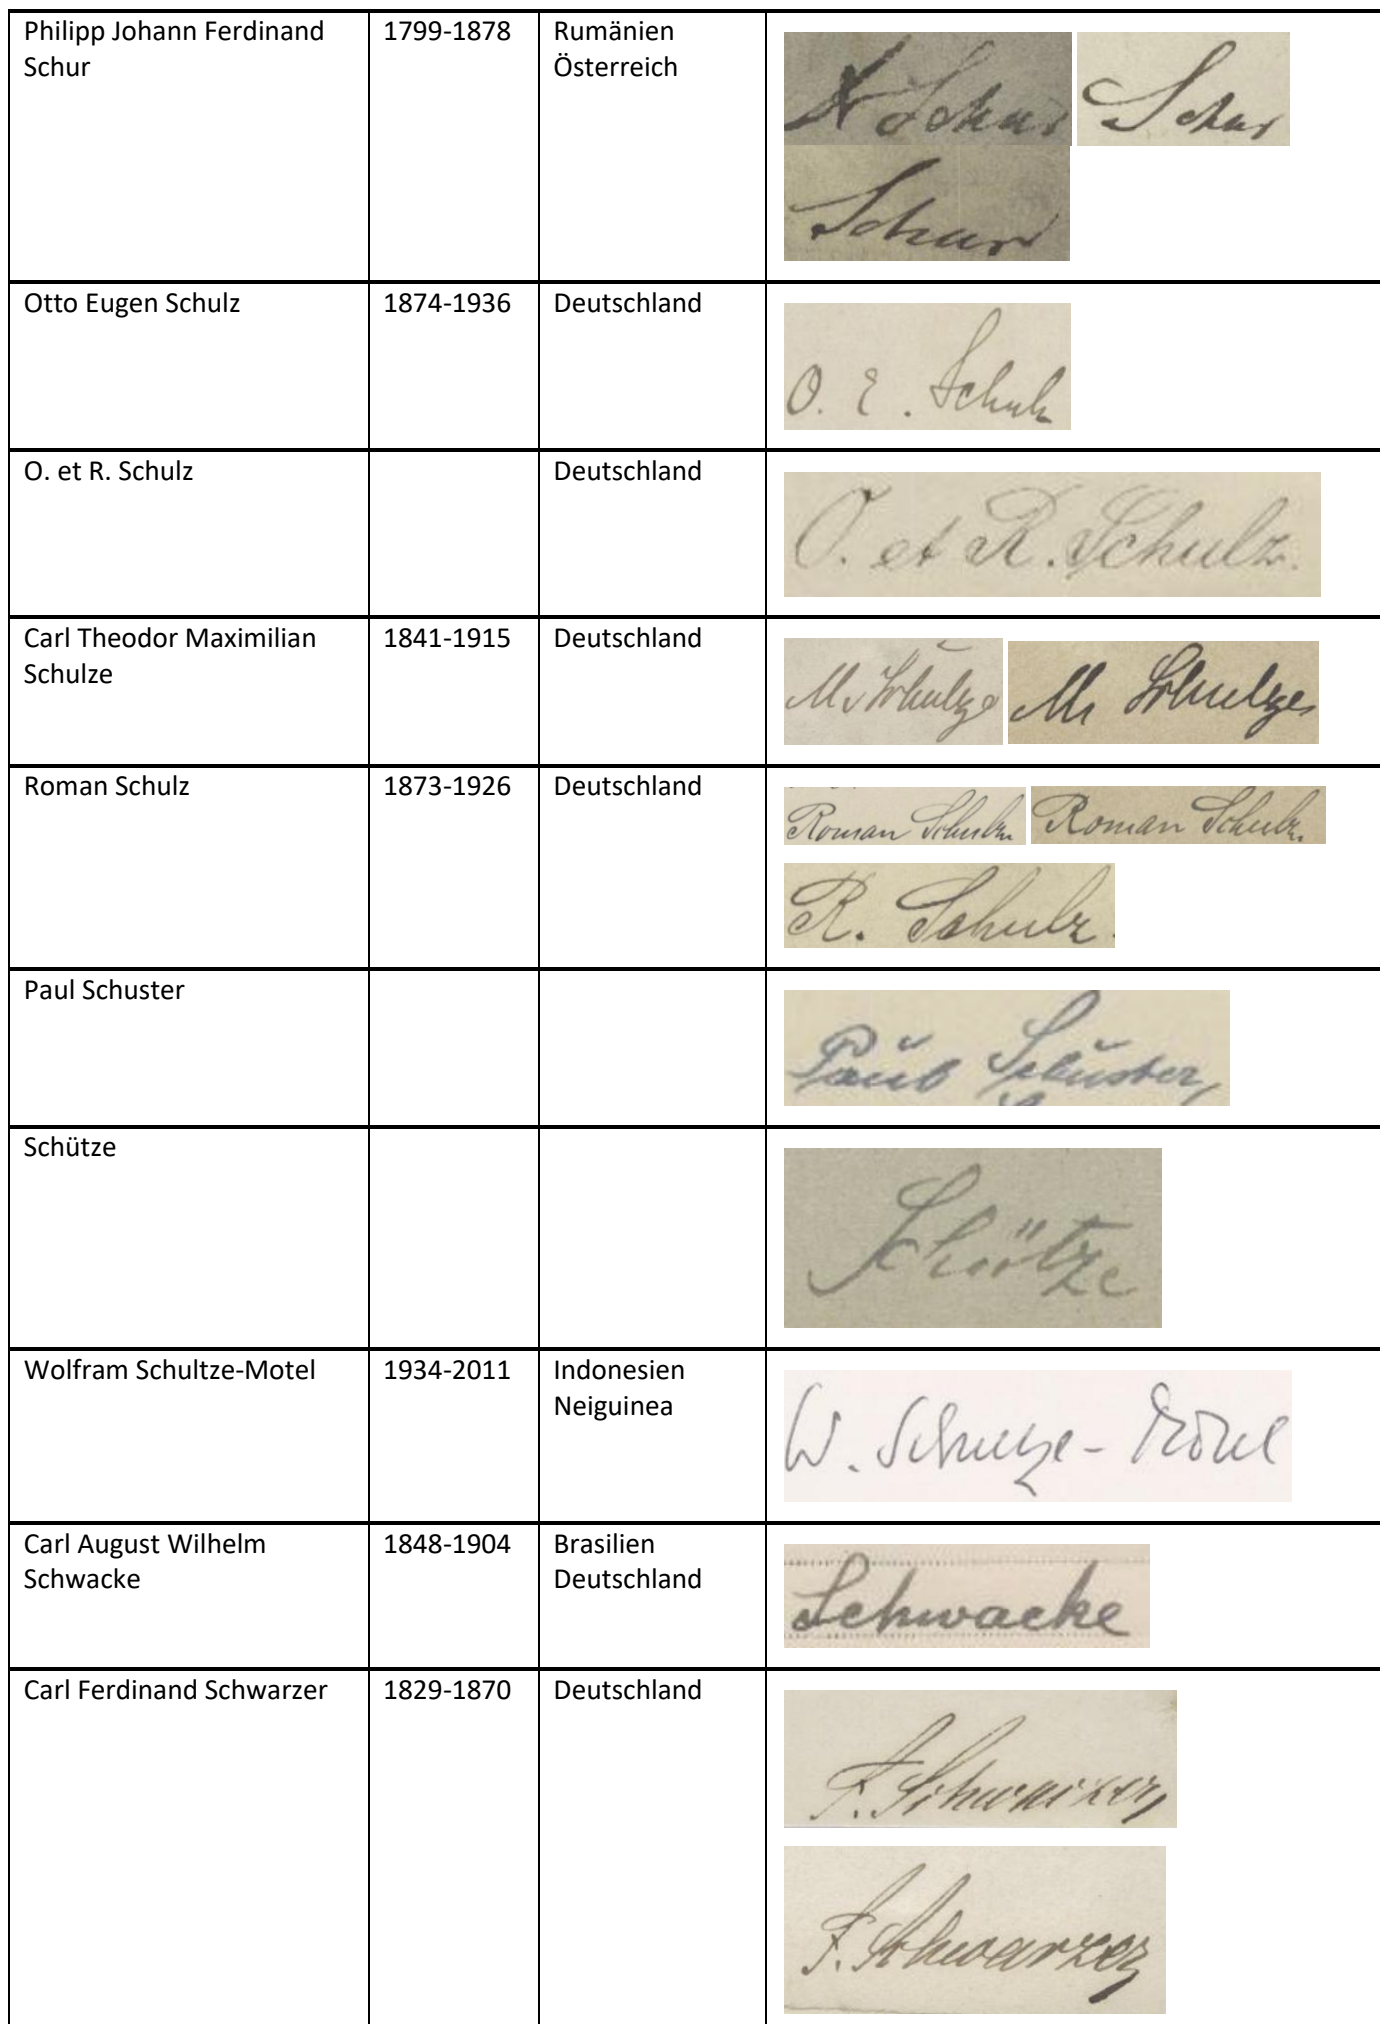 Philipp Johann Ferdinand
Schur
1799-1878
Rumänien
Österreich
Schur
Schur
Schur
Otto Eugen Schulz
1874-1936
Deutschland
O. E. Schulz
O. et R. Schulz
Deutschland
O. et R. Schulz.
Carl Theodor Maximilian
Schulze
1841-1915
Deutschland
M. Schulze
M. Schulze
Roman Schulz
1873-1926
Deutschland
Roman Schulz.
Roman Schulz.
R. Schulz.
Paul Schuster
Paul Schuster,
Schütze
Schütze
Wolfram Schultze-Motel
1934-2011
Indonesien
Neiguinea
W. Schultze-Motel
Carl August Wilhelm
Schwacke
1848-1904
Brasilien
Deutschland
Schwacke
Carl Ferdinand Schwarzer
1829-1870
Deutschland
F. Schwarzer,
F. Schwarzer